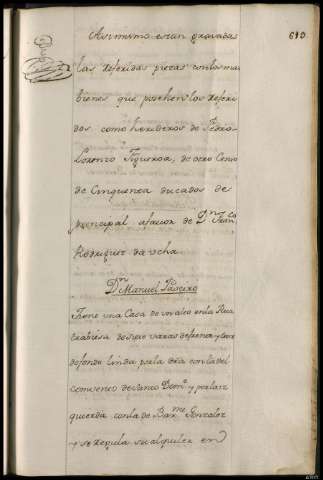 610
Asimismo estan gravadas
las referidas piezas con los mas
bienes que poshen los referi-
dos como herederos de Pedro
Lorenzo Figueroa, de otro Censo
de Cinquenta ducados de
principal afavor de Dn. Franco
Rodriguez da ucha
Dn. Manuel Paseiro
Tiene una Casa de un alto en la Rua
de siete varas de frente y
de fondo linda por la dra con la del
convento de Santo Domo. y por la iz
querda con la de Barme. Gonzalez
y se regula su alquiler en